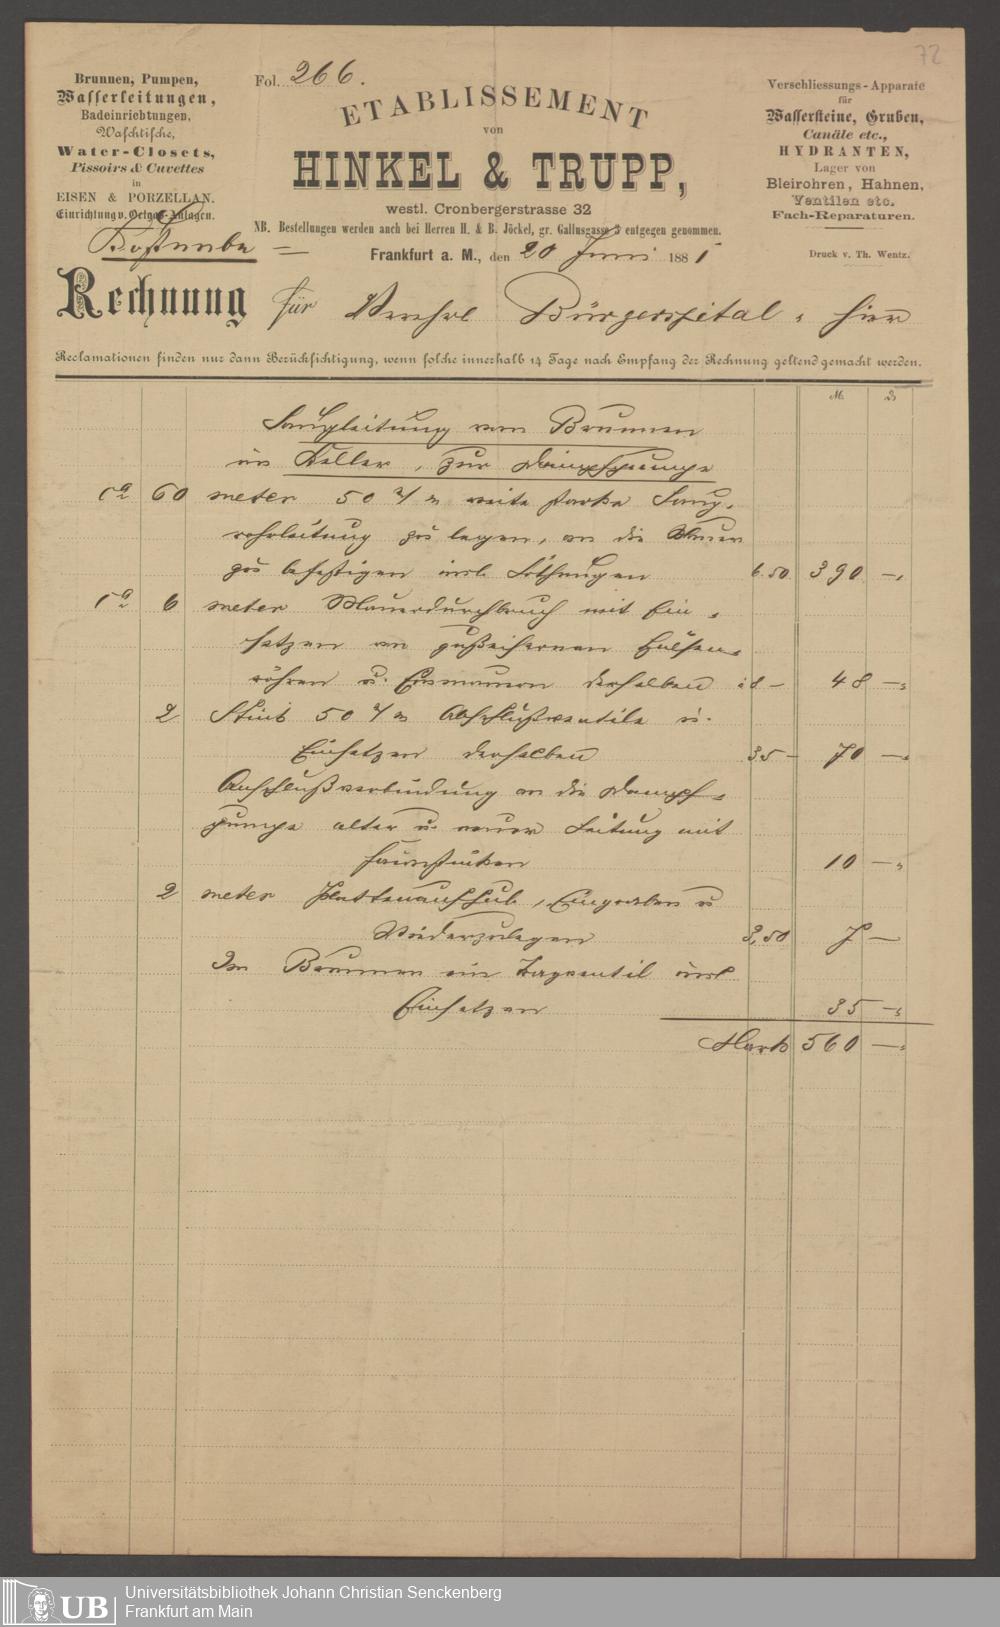 72
Fol. 266.
Brunnen, Pumpen,
Wasserleitungen,
Badeinrichtungen,
Waschtische,
Water-Closets,
Pissoirs & Cuvettes
in
EISEN & PORZELLAN.
Einrichtung v. Oelgas-Anlagen.
ETABLISSEMENT
von
HINKEL & TRUPP,
westl. Cronbergerstrasse 32
NB. Bestellungen werden auch bei Herren H. & B. Jöckel, gr. Gallusgasse 5 entgegen genommen.
Verschliessungs-Apparate
für
Wassersteine, Gruben,
Canäle etc.,
HYDRANTEN,
Lager von
Bleirohren, Hahnen,
Ventilen etc.
Fach-Reparaturen.
Druck v. Th. Wentz.
Frankfurt a. M., den 20 Juni 1881
Rechnung für Bürgerspital, hier
Reclamationen finden nur dann Berücksichtigung, wenn solche innerhalb 14 Tage nach Empfang der Rechnung geltend gemacht werden.
M. ₰
Saugleitung vom Brunnen
im Keller, zur Dampfpumpe
ca 60 meter 50 m/m weite starke Saug-
rohrleitung zu legen, an die Mauer
zu befestigen incl. Löthungen 6.50 390 —
ca 6 meter Mauerdurchbruch mit Ein-
setzen von gußeisernen Hülsen-
röhren u. Einmauern derselben à 8 — 48 —
2 Stück 50 m/m Abschlußventile u.
Einsetzen derselben 35 — 70 —
Anschlußverbindung an die Dampf-
pumpe alter u. neuer Leitung mit
10 —
2 meter Plattenaufhub, Eingraben u
Wiederzulegen 3,50 7 —
Im Brunnen ein incl
Einsetzen 35 —
Mark 560 —
UB
Universitätsbibliothek Johann Christian Senckenberg
Frankfurt am Main